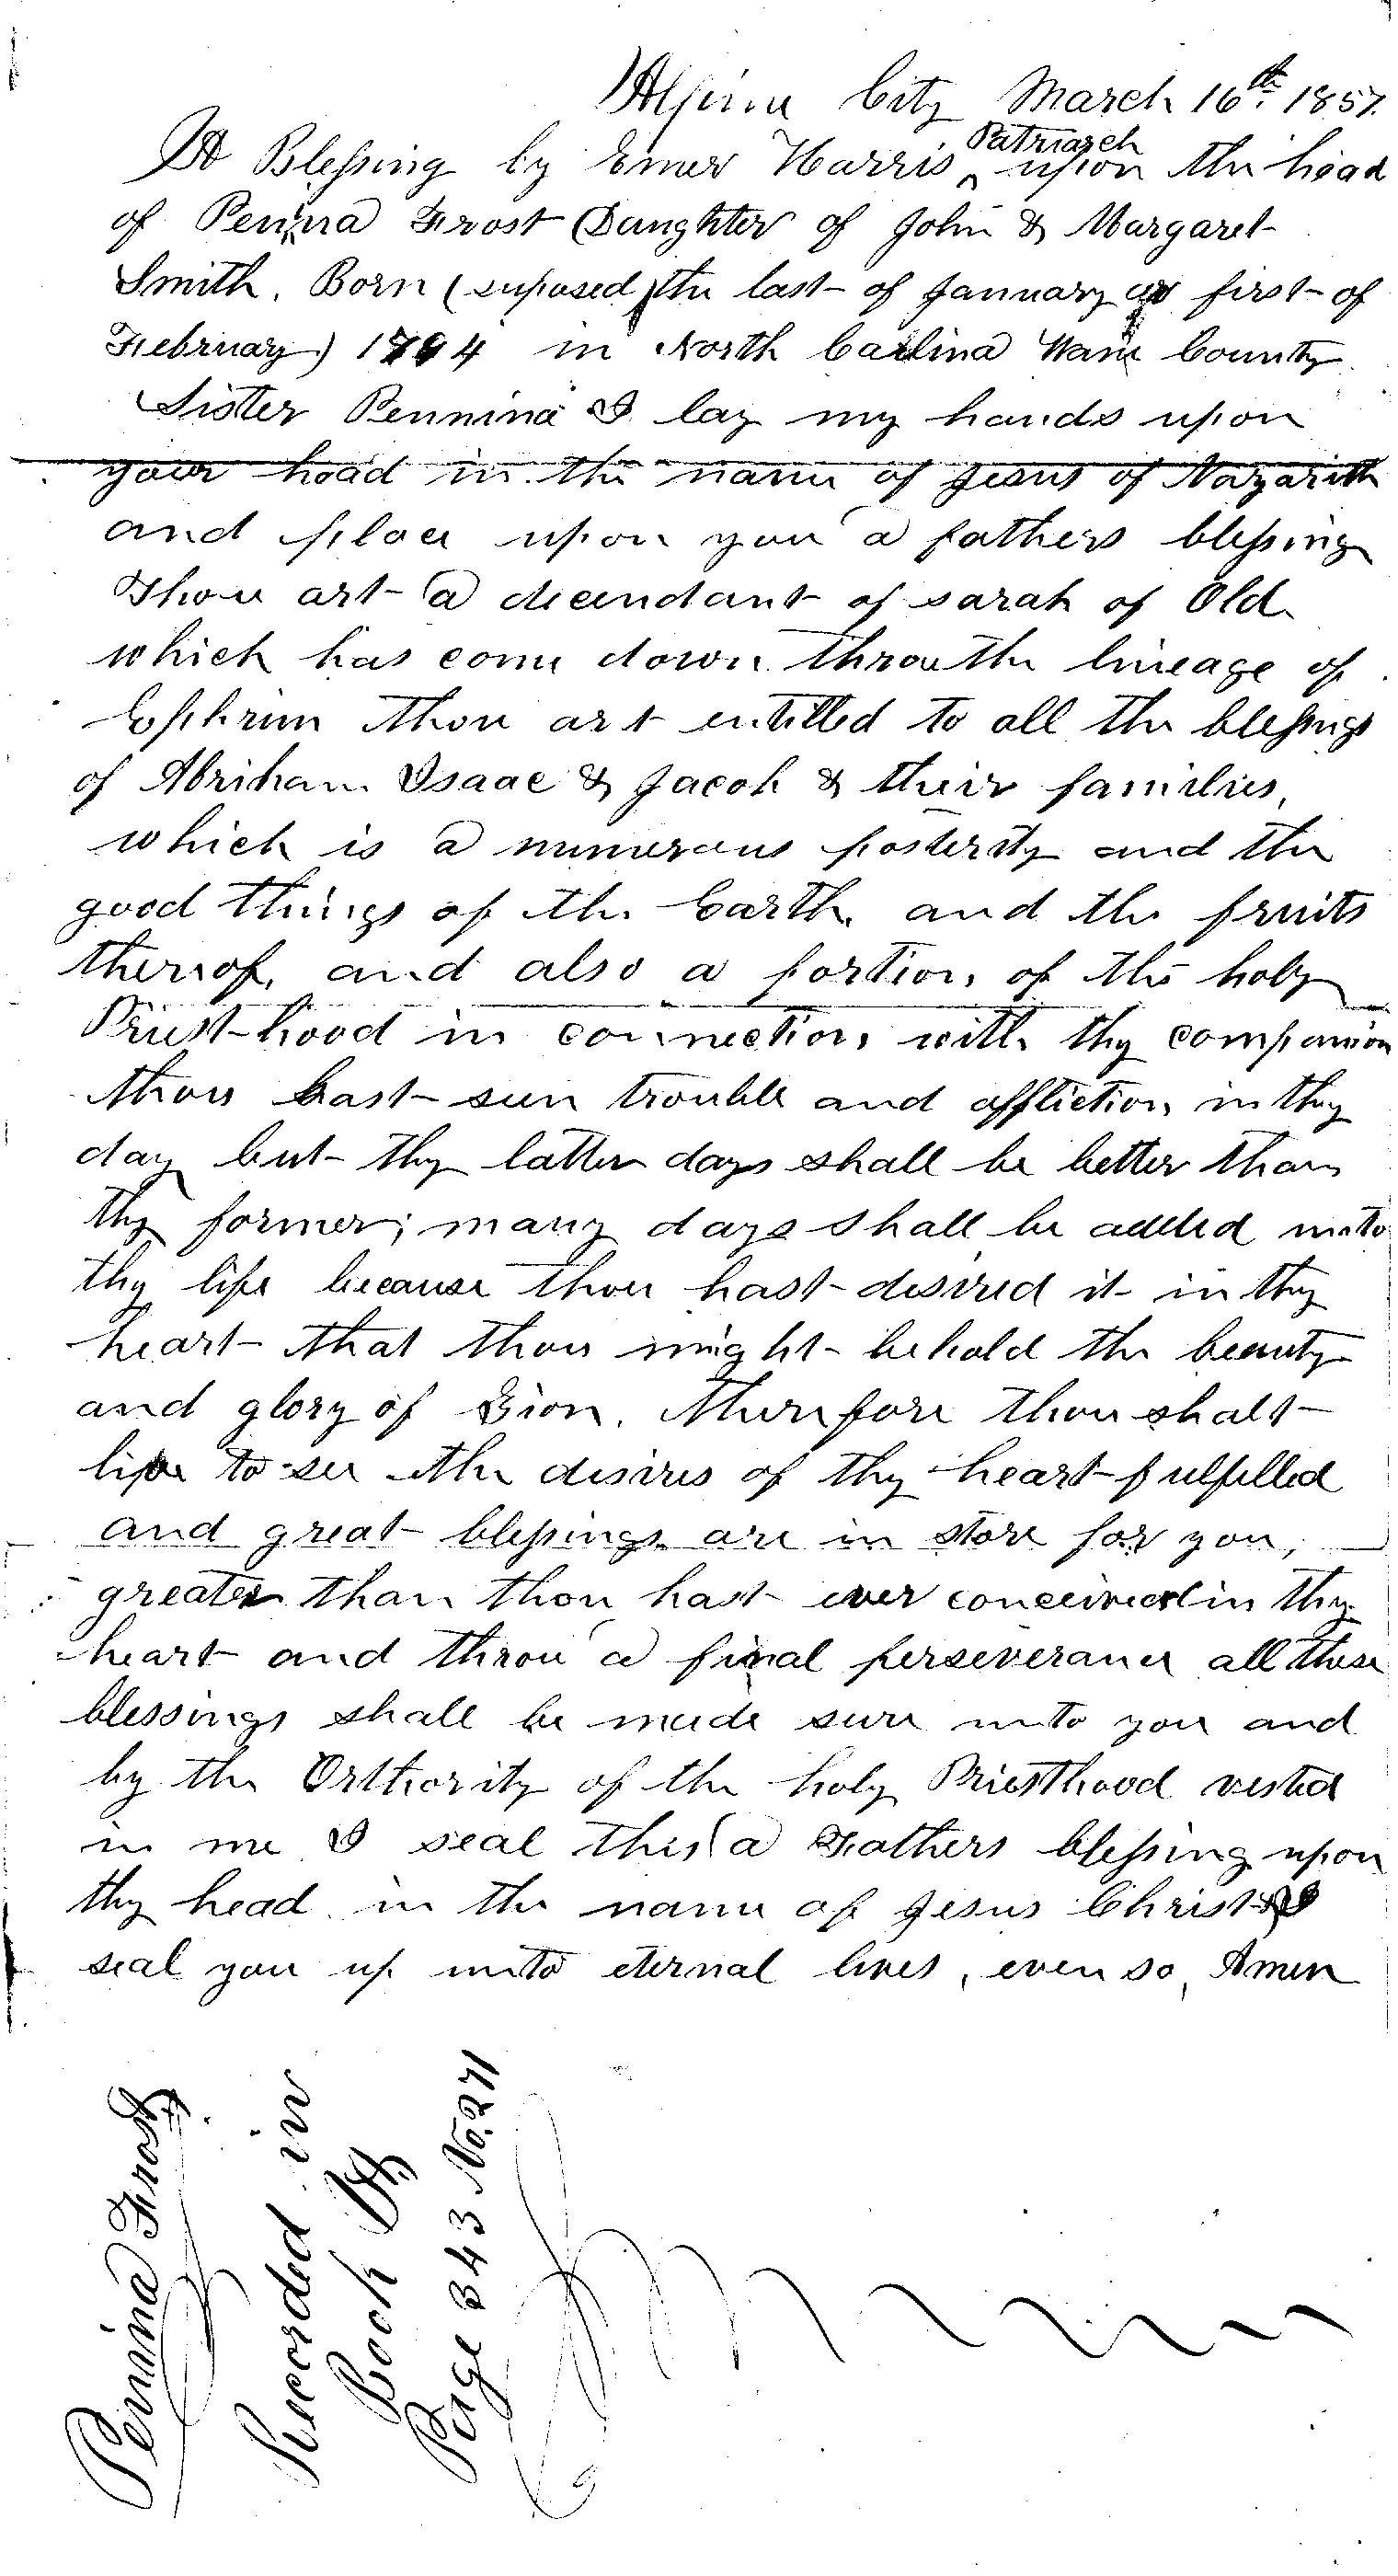 Alpine City March 16th. 1857.
A Blessing by Emer Harris Patriarch upon the head
of Penina Frost Daughter of John & Margaret
Smith. Born (suposed the last of January or first of
February) 1794 in North Carlina County
Sister Pennina I lay my hands upon
your head in the name of Jesus of Nazarith
and place upon you a fathers blessing
Thou art a decendant of sarah of Old
which has come down throu the lineage of
Ephrim thou art entitled to all the blessings
of Abriham Isaac & Jacob & their families,
which is a numerous posterity and the
good things of the Earth and the fruits
thereof, and also a portion of the holy
Priest-hood in connection with thy companion
thou hast seen trouble and affliction in thy
day but thy latter days shall be better than
thy former; many days shall be added unto
thy life because thou hast desired it in thy
heart that thou might behold the beauty
and glory of Zion. Therefore thou shalt
live to see the desires of thy heart fulfilled
and great blessings are in store for you,
greater than thou hast ever conceived in thy
heart and throu a final perseverance all these
blessings shall be made sure unto you and
by the Orthority of the holy Priesthood vested
in me I seal this a Fathers blessing upon
thy head in the name of Jesus Christ
seal you up unto eternal lives, even so, Amen
Penina Frost
Recorded in
Book
Page 343 No. 271